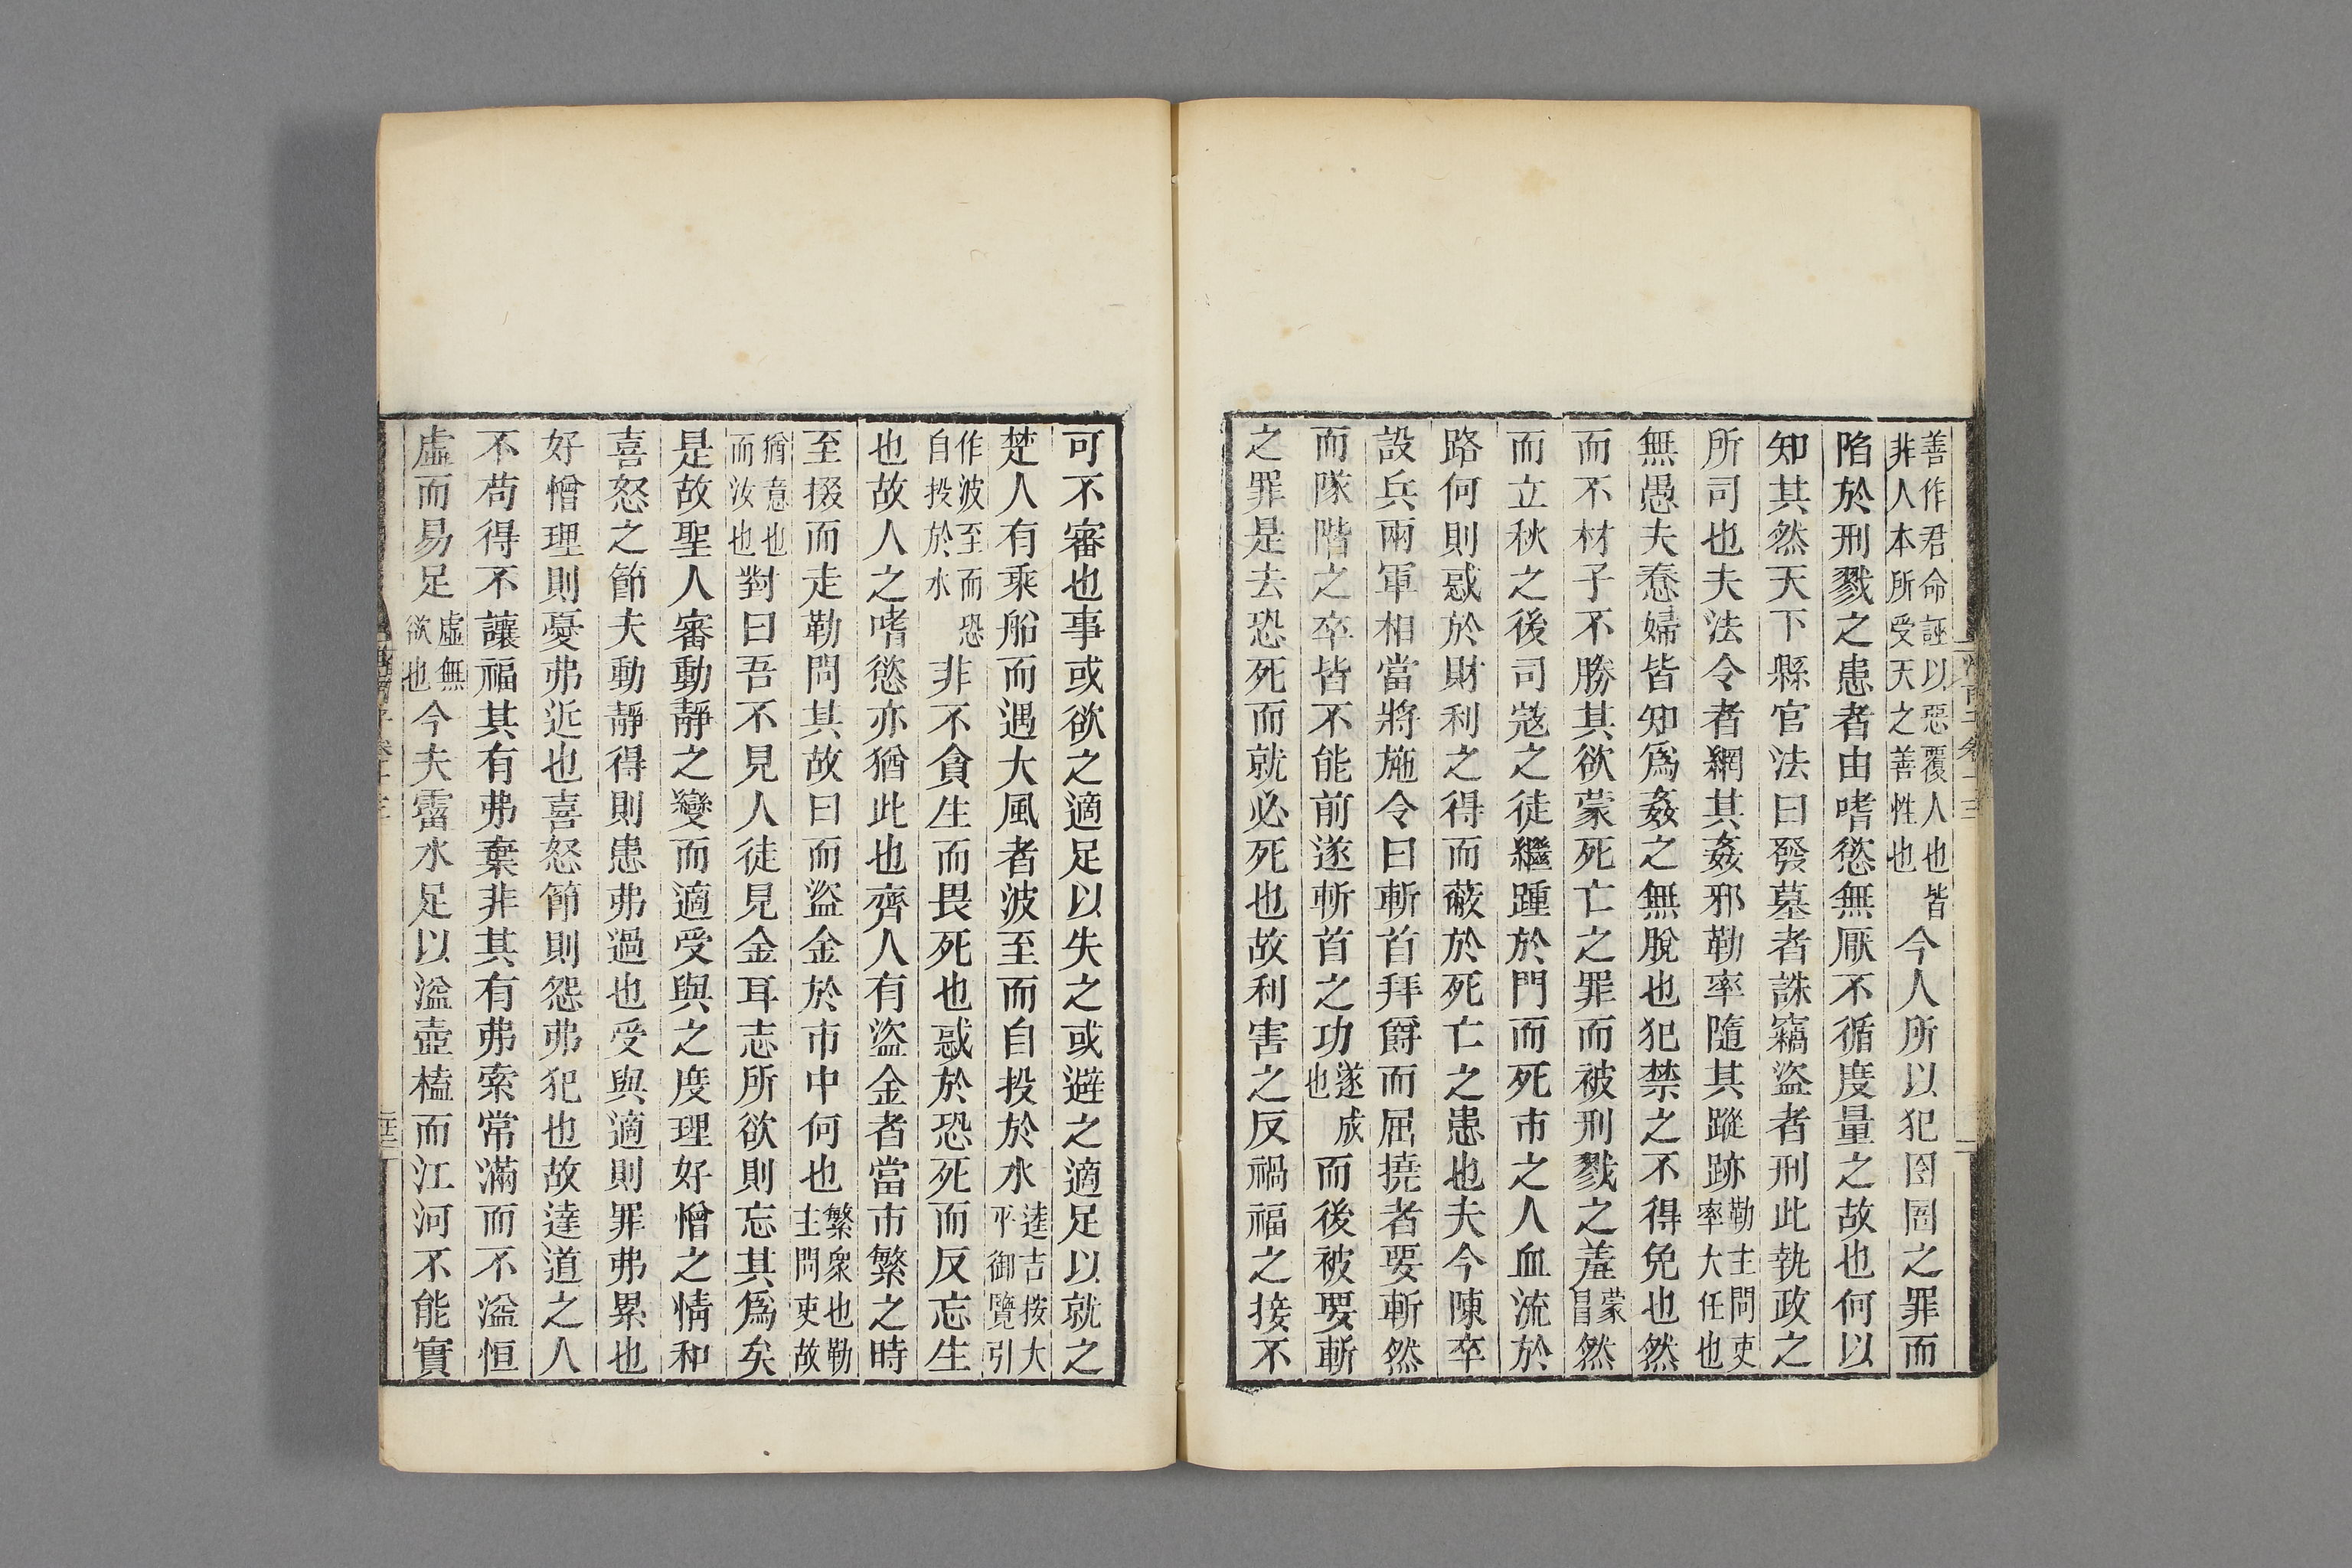 善作君命誣以惡覆人也皆非人本所受天之善性也今人所以犯囹圄之罪而
陷於刑戮之患者由嗜慾無厭不循度量之故也何以
知其然天下縣官法曰發墓者誅竊盜者刑此執政之
所司也夫法令者網其姦邪勒率隨其蹤跡勒主問吏率大任也
無愚夫惷婦皆知爲姦之無脫也犯禁之不得免也然
而不材子不勝其欲蒙死亡之罪而被刑戮之羞蒙冒然
而立秋之後司寇之徒繼踵於門而死市之人血流於
路何則惑於財利之得而蔽於死亡之患也夫今陳卒
設兵兩軍相當將施令曰斬首拜爵而屈撓者要斬然
而隊階之卒皆不能前遂斬首之功遂成也而後被要斬
之罪是去恐死而就必死也故利害之反禍福之接不
可不審也事或欲之適足以失之或避之適足以就之
楚人有乘船而遇大風者波至而自投於水逵吉按大平御覽引
作波至而恐自投於水非不貪生而畏死也惑於恐死而反忘生
也故人之嗜慾亦猶此也齊人有盜金者當市繁之時
至掇而走勒問其故曰而盜金於市中何也繁衆也勒主問吏故
猶意也而汝也對曰吾不見人徒見金耳志所欲則忘其爲矣
是故聖人審動靜之變而適受與之度理好憎之情和
喜怒之節夫動靜得則患弗過也受與適則罪弗累也
好憎理則憂弗近也喜怒節則怨弗犯也故達道之人
不苟得不讓福其有弗棄非其有弗索常滿而不溢恒
虛而易足虛無欲也今夫霤水足以溢壺榼而江河不能實